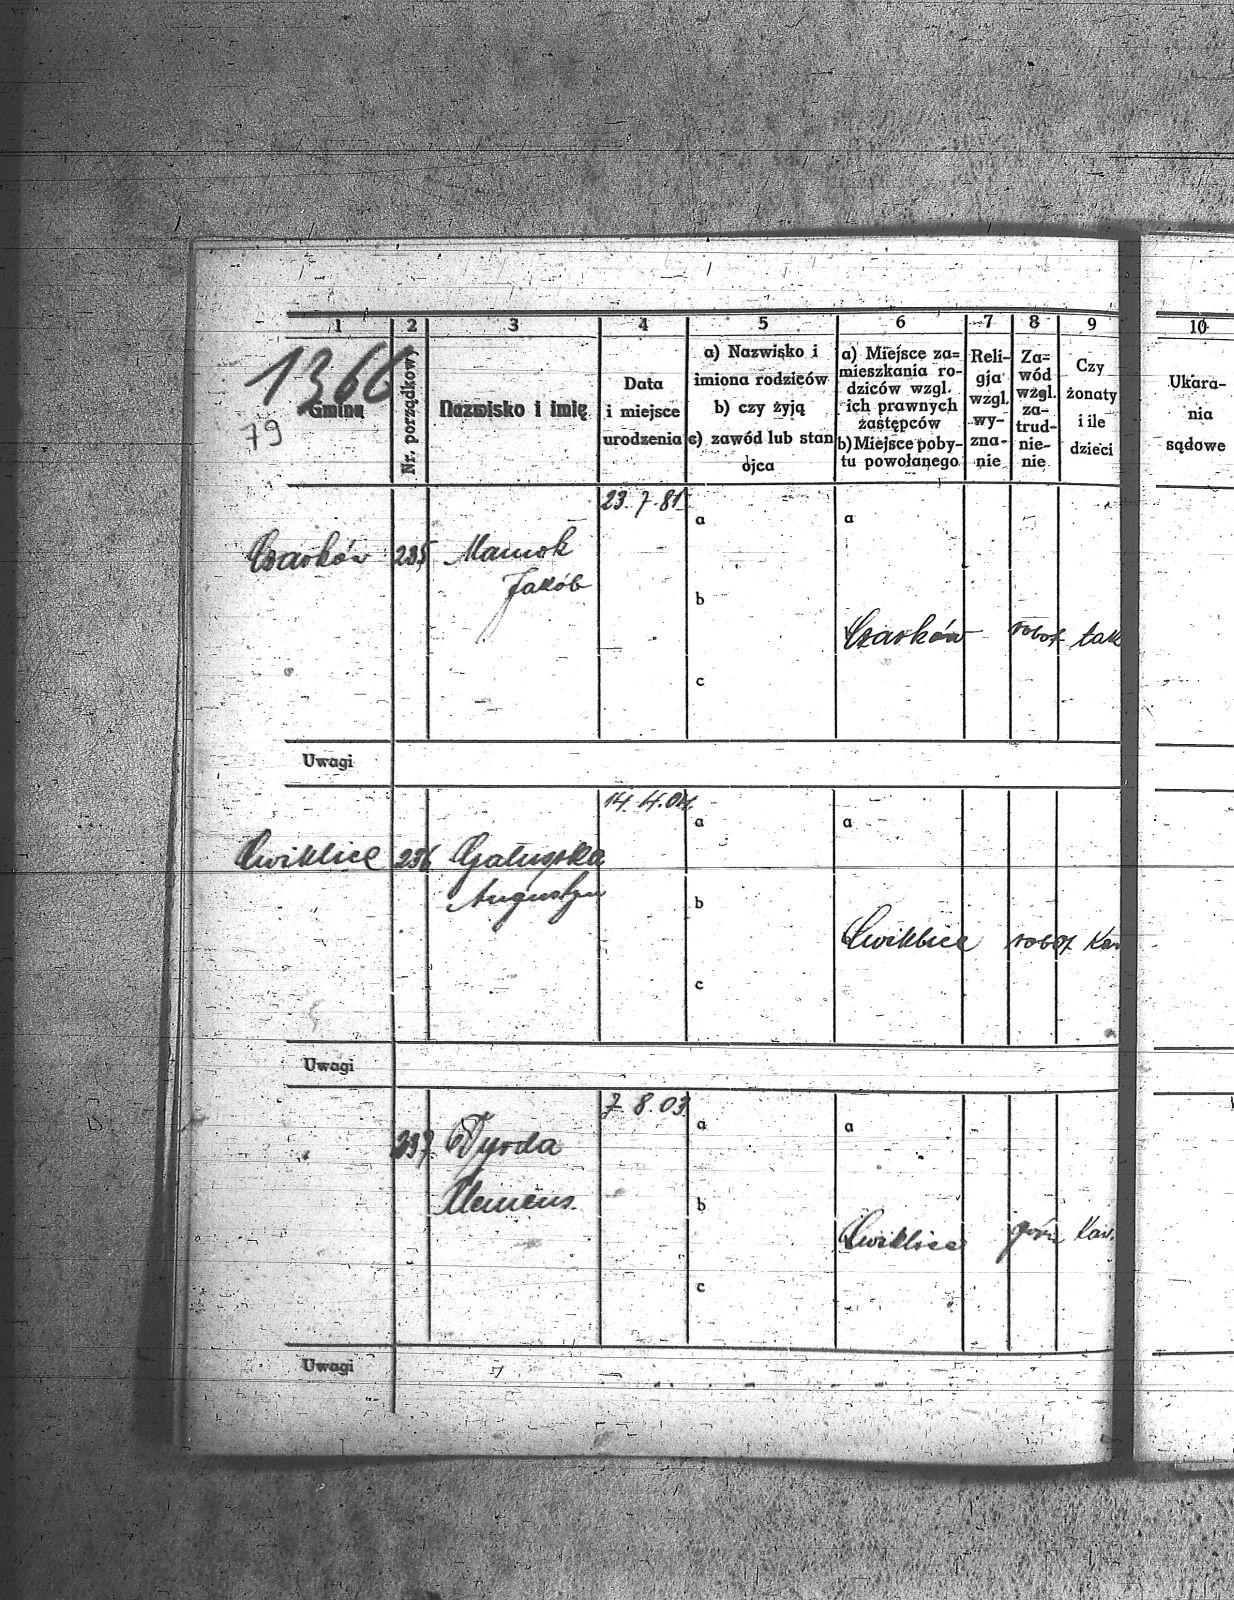 1 2 3 4 5 6 7 8 9 10
1366
79
Gmina
Nr. porządkowy
Nazwisko i imię
Data
i miejsce
urodzenia
a) Nazwisko i
imiona rodziców
b) czy żyją
c) zawód lub stan
ojca
a) Miejsce za=
mieszkania ro-
dziców wzgl.
ich prawnych
zastępców
b) Miejsce poby-
tu powołanego
Reli-
gja
wzgl.
wy-
zna-
nie
Za=
wód
wzgl.
za-
trud-
nie-
nie
Czy
żonaty
i ile
dzieci
Ukara-
nia
sądowe
23. 7. 81
a a
Czarków 235 Mamok
Jakób
b
Czarków robot tak
c
Uwagi
14. 4. 04.
a a
Cwiklice 236 Gałuszka
Augustyn
b
Cwiklice robot Kaw
c
Uwagi
7. 8. 03
a a
237. Tyrda
Klemens.
b
Cwiklice górn Kaw.
c
Uwagi